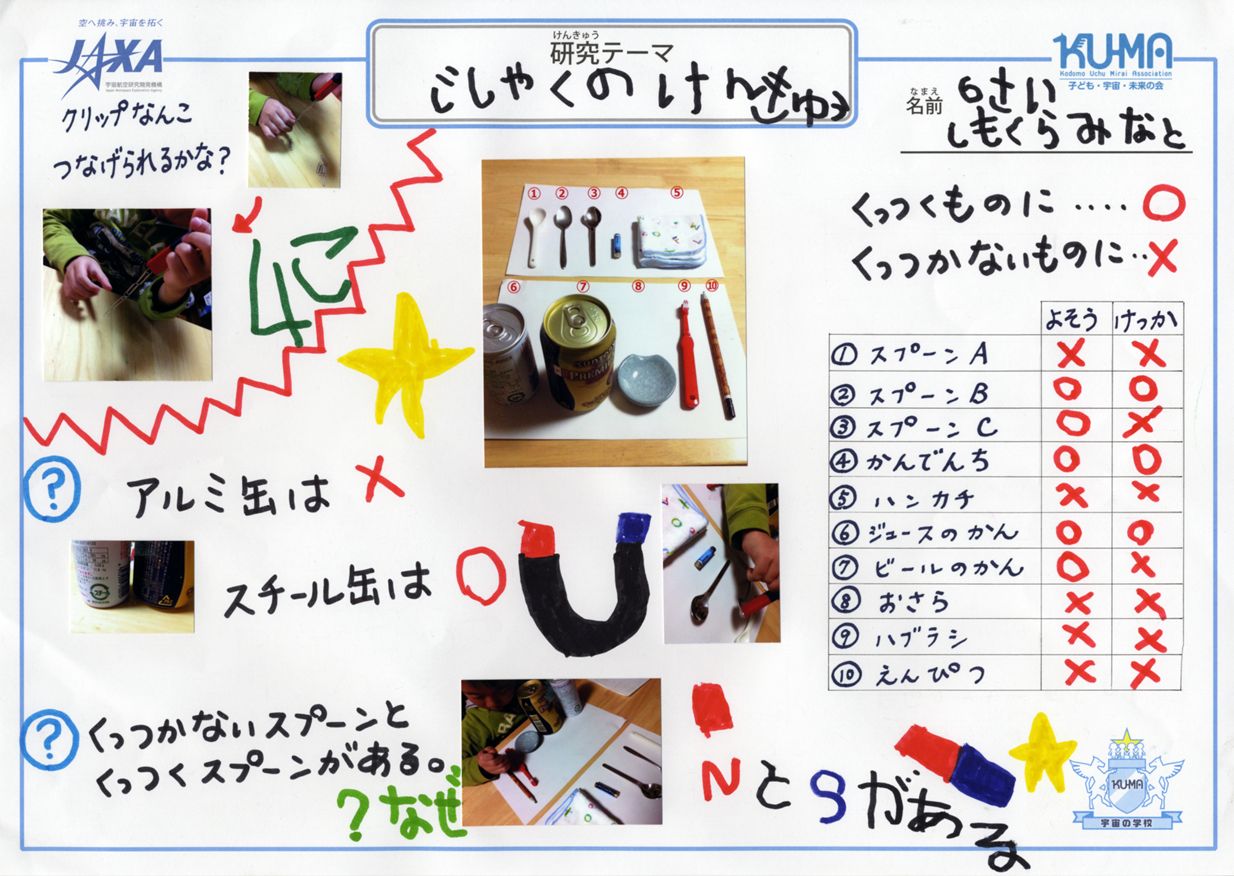 空へ挑み、宇宙を拓く
JAXA
宇宙航空研究開発機構
Japan Aerospace Exploration Agency
けんきゅう
研究テーマ
じしゃくの けんきゅう
KU-MA
Kodomo Uchu Mirai Association
子ども・宇宙・未来の会
なまえ
名前
6さい
しもくらみなと
クリップなんこ
つなげられるかな?
4こ
① ② ③ ④ ⑤
⑥ ⑦ ⑧ ⑨ ⑩
くっつくものに ‥‥ ○
くっつかないものに‥ ×
よそう けっか
① スプーンA × ×
② スプーンB ○ ○
③ スプーンC ○ ×
④ かんでんち ○ ○
⑤ ハンカチ × ×
⑥ ジュースのかん ○ ○
⑦ ビールのかん ○ ×
⑧ おさら × ×
⑨ ハブラシ × ×
⑩ えんぴつ × ×
?
アルミ缶は ×
スチール缶は ○
?
くっつかないスプーンと
くっつくスプーンがある。
?なぜ
NとSがある
KUMA
宇宙の学校